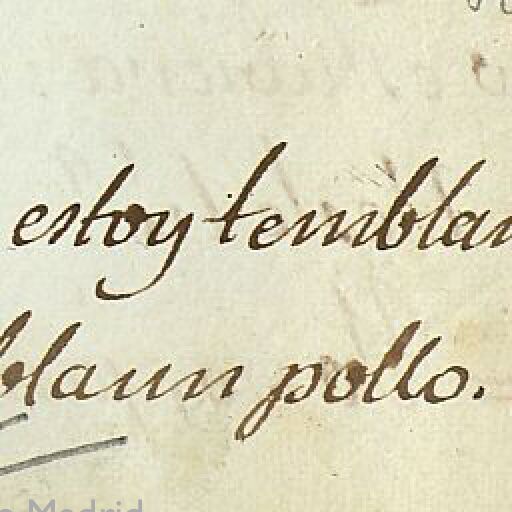 estoy temblan
blaun pollo.
Madrid